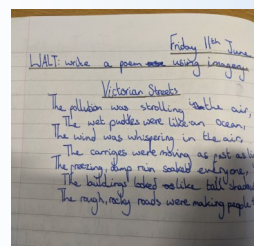 Friday 11th June
WALT: write a poem using imagery
Victorian Streets
The pollution was strolling the air,
The wet puddles were like an ocean,
The wind was whispering in the air,
The carriges were moving as fast as
The freezing, damp rain soaked everyone,
The buildings looked like tall
The rough, rocky roads were making people